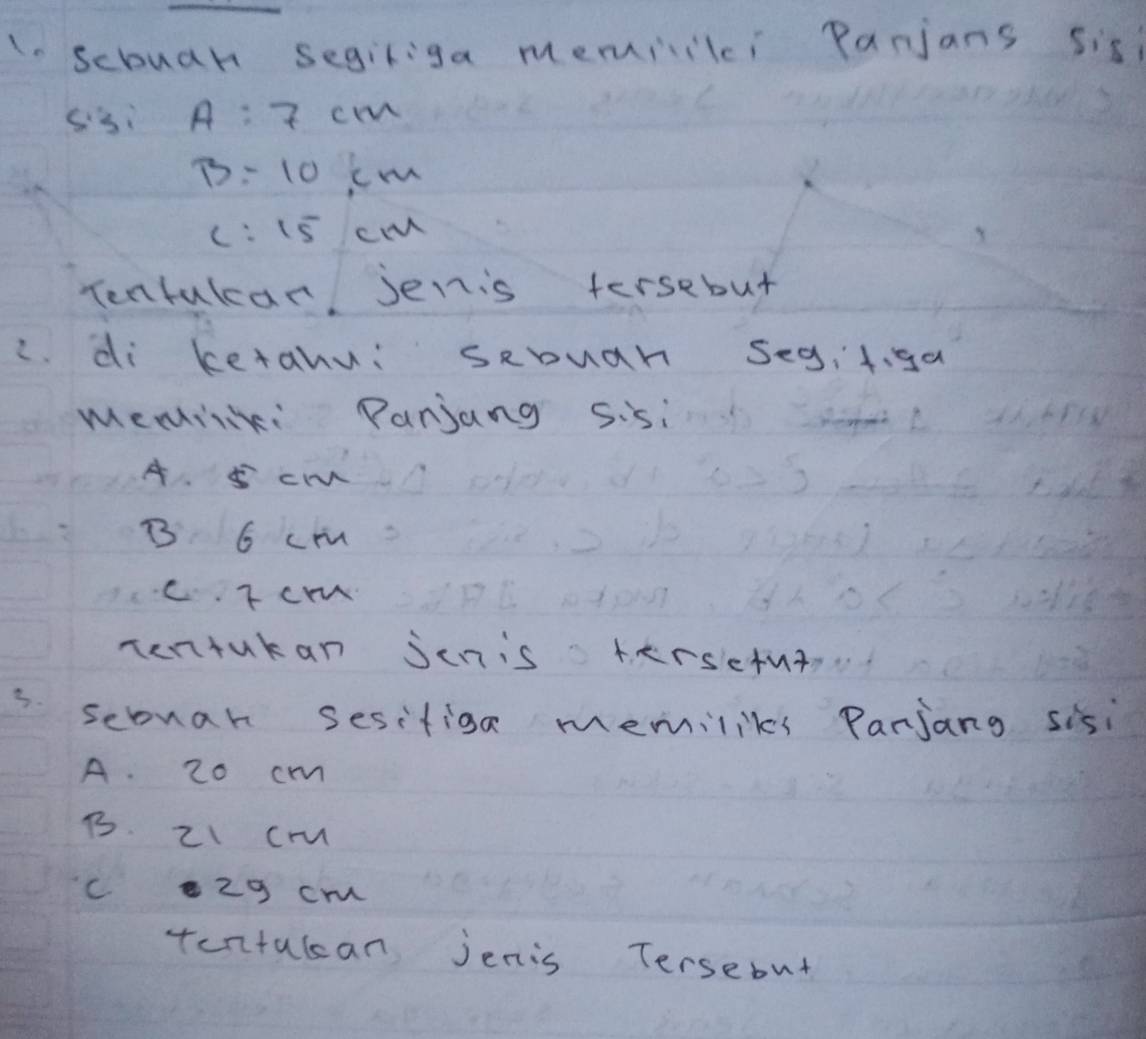 1. Sebuah segitiga memiliki Panjans sisi
sisi A : 7 cm
B = 10 cm
C : 15 cm
Tentukan jenis tersebut
2. di ketahui sebuah Segitiga
memiliki Panjang sisi
A. 5 cm
B 6 cm
C. 7 cm
Tentukan jenis tersetut
3. sebuah sesitiga memiliki Panjang sisi
A. 20 cm
B. 21 cm
C 29 cm
tentukan jenis Tersebut